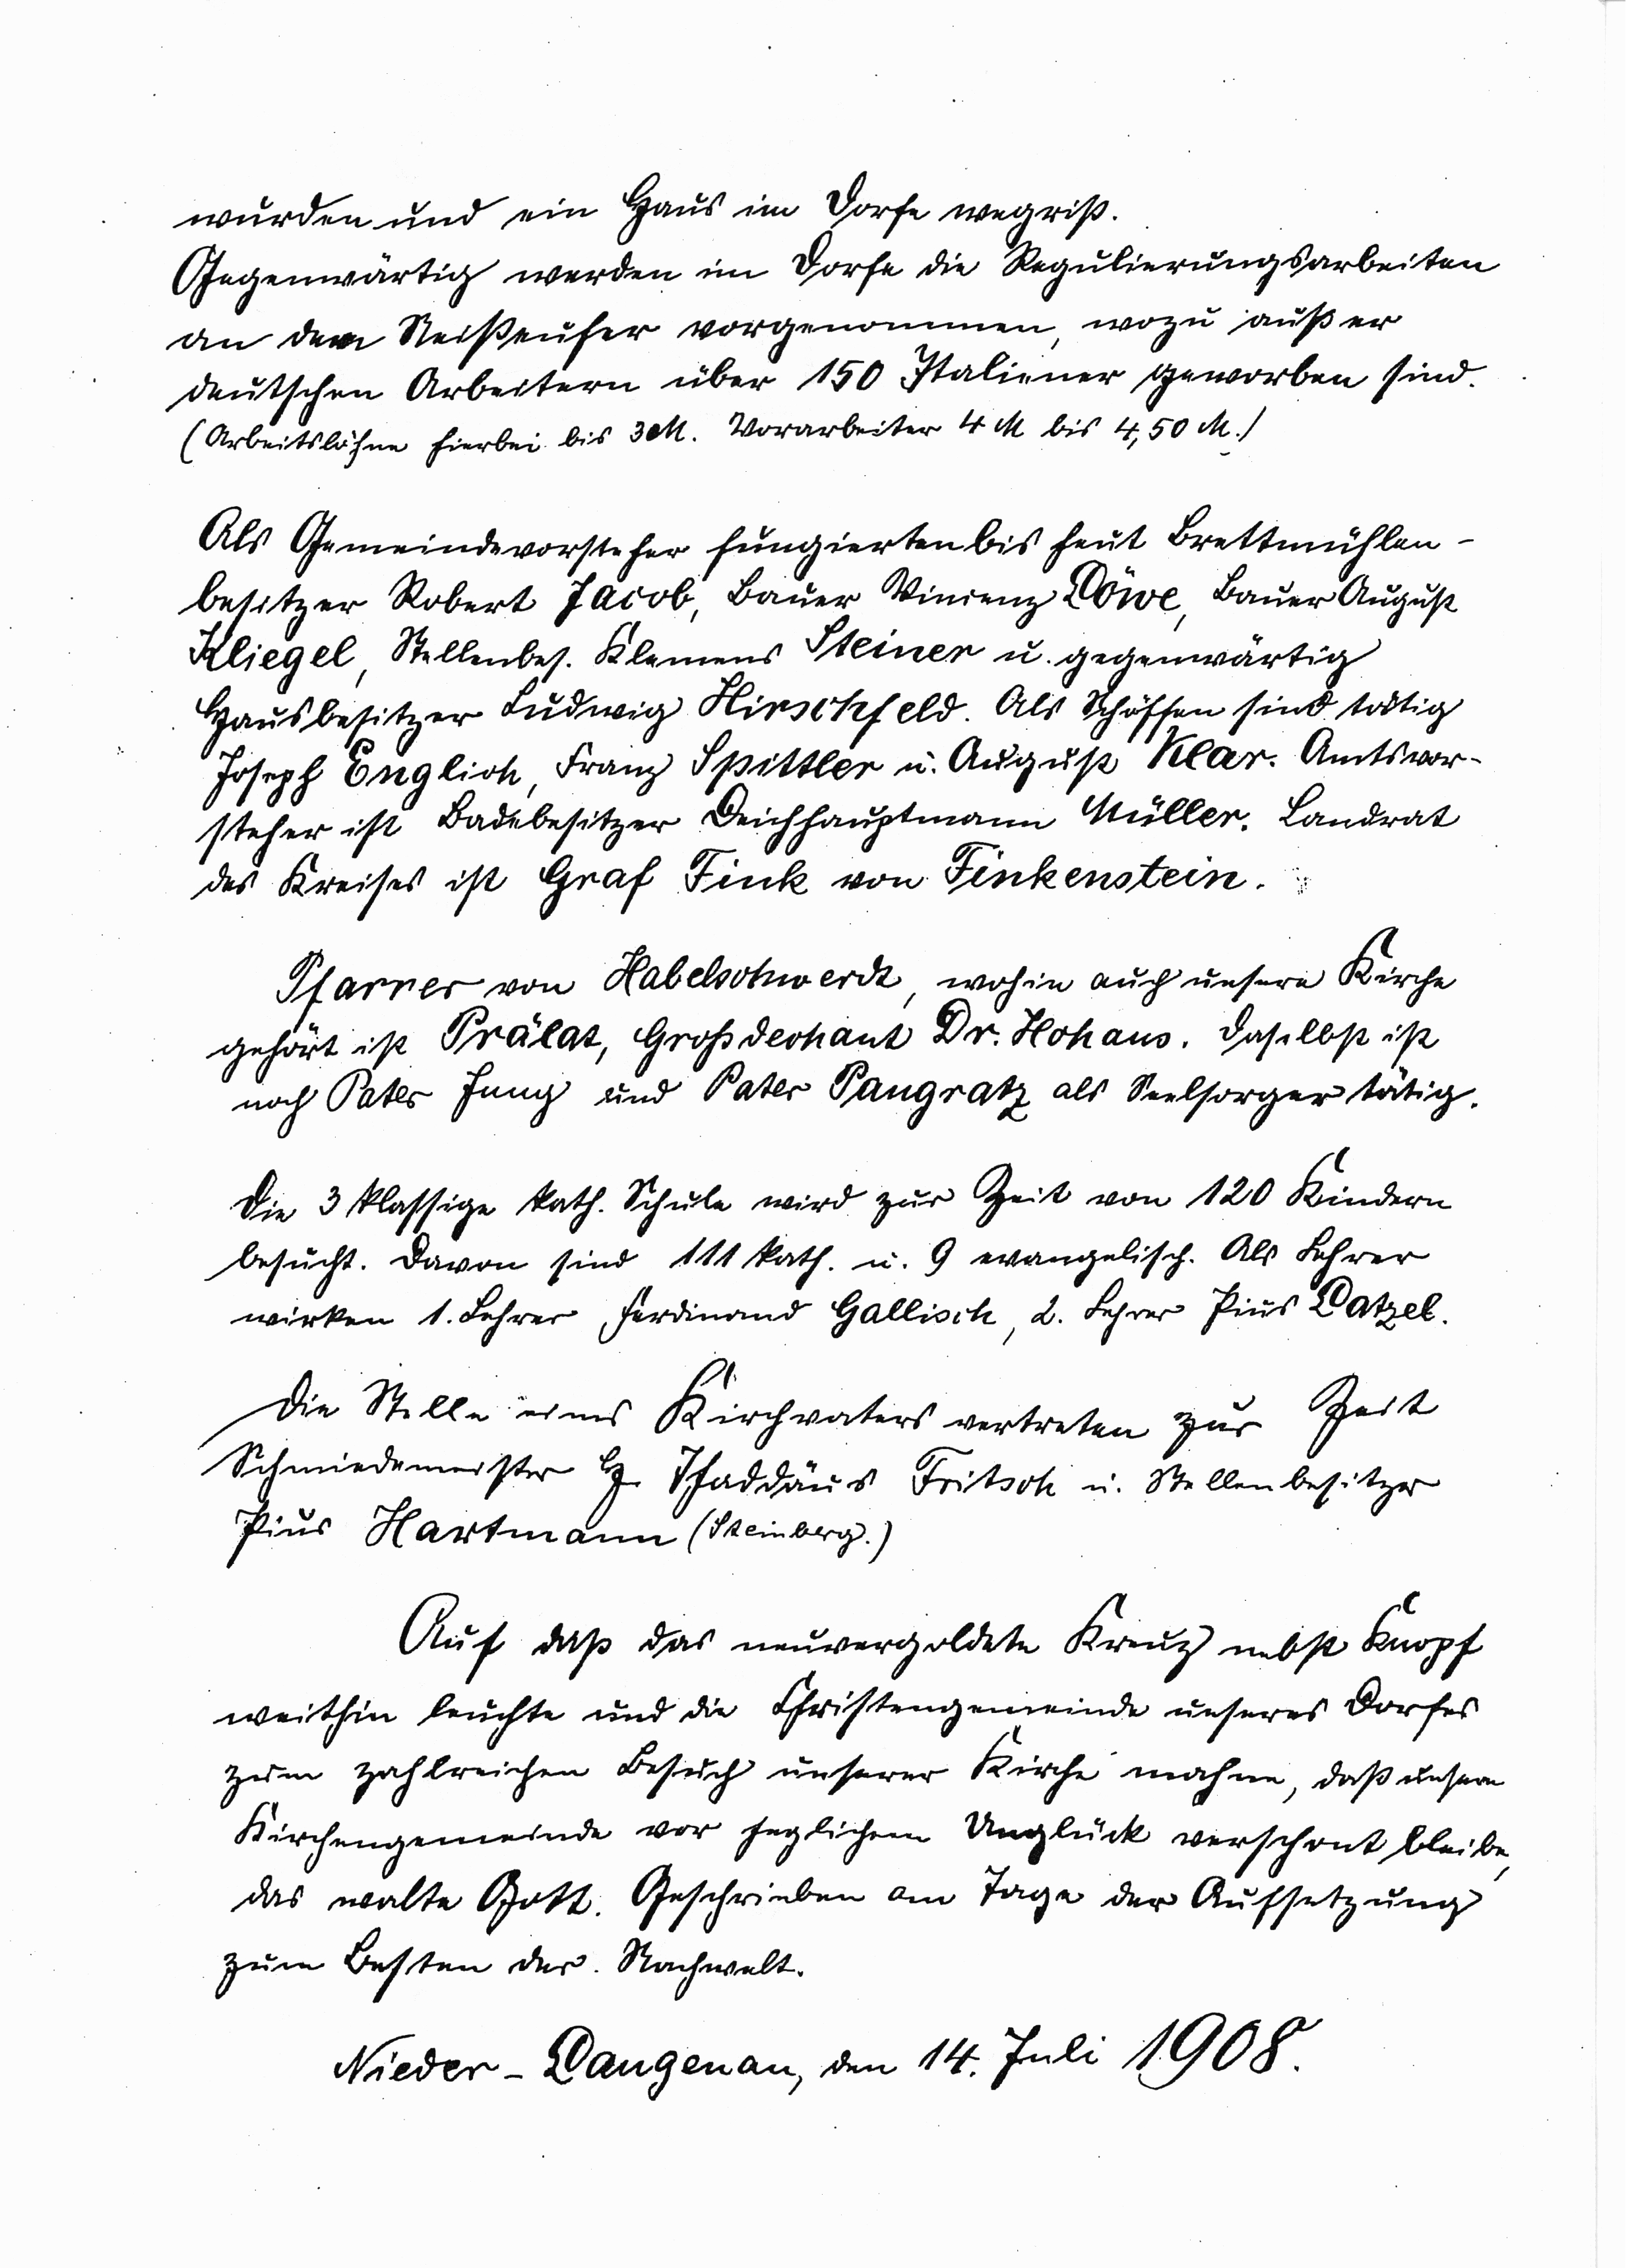 wurden und ein Haus im Dorfe wegriß.
Gegenwärtig werden im Dorfe die Regulierungsarbeiten
an dem Neißeufer vorgenommen, wozu außer
deutschen Arbeitern über 150 Italiener geworben sind.
(Arbeitslöhne hierbei bis 3 M. Vorarbeiter 4 M bis 4,50 M.)
Als Gemeindevorsteher fungierten bis heut Brettmühlen-
besitzer Robert Jacob, Bauer Vincenz Löwe, Bauer August
Kliegel, Stellenbes. Klemens Steiner u. gegenwärtig
Hausbesitzer Ludwig Hirschfeld. Als Schöffen sind tätig
Joseph Englich, Franz Spittler u. August Klar. Amtsvor-
steher ist Badebesitzer Deichhauptmann Müller. Landrat
des Kreises ist Graf Fink von Finkenstein.
Pfarrer von Habelschwerdt, wohin auch unsere Kirche
gehört ist Prälat, Großdechant Dr. Hohaus. Daselbst ist
noch Pater Jung und Pater Pangratz als Seelsorger tätig.
Die 3 klassige kath. Schule wird zur Zeit von 120 Kindern
besucht. Davon sind 111 kath. u. 9 evangelisch. Als Lehrer
wirken 1. Lehrer Ferdinand Gallisch, 2. Lehrer Pius Latzel.
Die Stelle eines Kirchvaters vertreten zur Zeit
Schmiedemeister H. Thaddäus Fritsch u. Stellenbesitzer
Pius Hartmann (Steinberg.)
Auf daß das neuvergoldete Kreuz nebst Knopf
weithin leuchte und die Christengemeinde unseres Dorfes
zum zahlreichen Besuch unserer Kirche mahne, daß unsere
Kirchengemeinde vor jeglichem Unglück verschont bleibe,
das walte Gott. Geschrieben am Tage der Aufsetzung
zum Besten der Nachwelt.
Nieder-Langenau, den 14. Juli 1908.